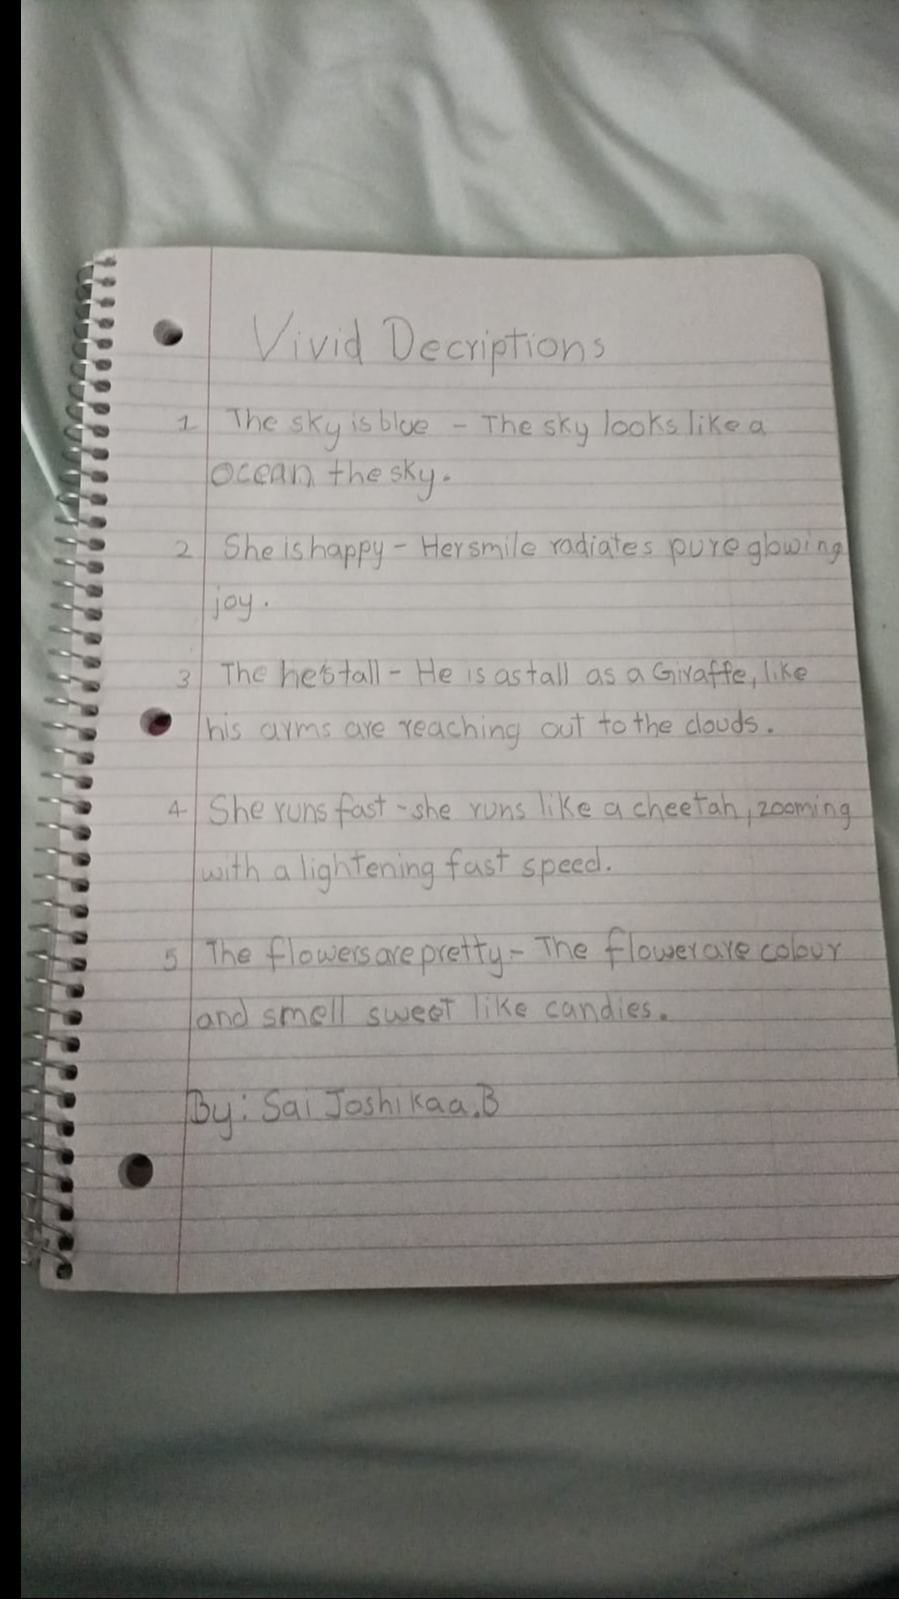 Vivid Decriptions
1 The sky is blue - The sky looks like a
ocean the sky.
2 She is happy - Her smile radiates pure glowing
joy.
3 The he's tall - He is as tall as a Giraffe, like
his arms are reaching out to the clouds.
4 She runs fast - she runs like a cheetah, zooming
with a lightening fast speed.
5 The flowers are pretty - The flower are colour
and smell sweet like candies.
By: Sai Joshikaa.B